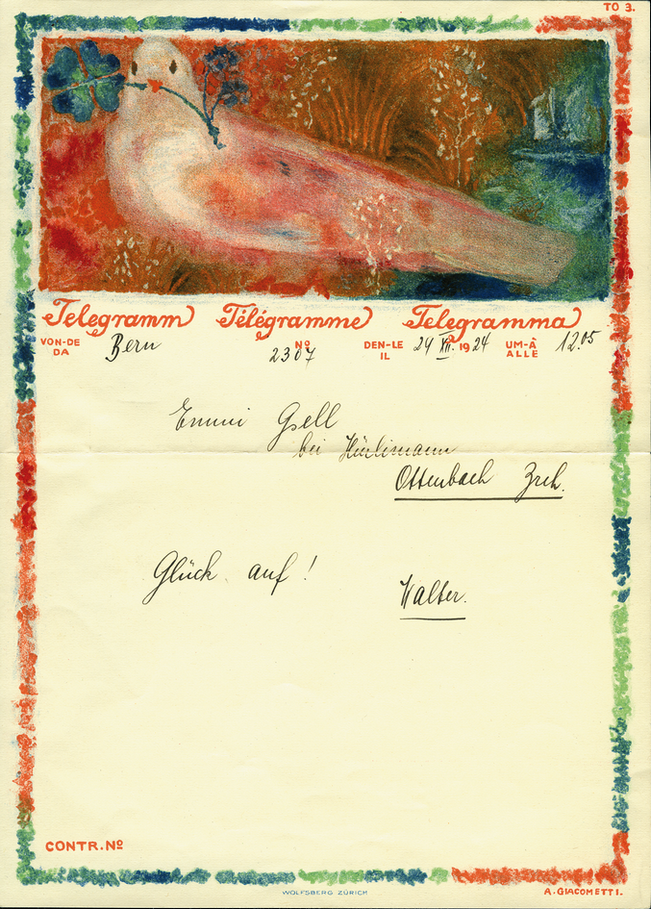 TO 3.
Telegramm Télégramme Telegramma
VON-DE DA Bern Nº 2307 DEN-LE IL 24 XII. 1924 UM-À ALLE 12.05
Emmi Gsell
bei Hürlimann
Ottenbach Zrch.
Glück auf!
Walter.
CONTR. Nº
WOLFSBERG ZÜRICH
A. GIACOMETTI.